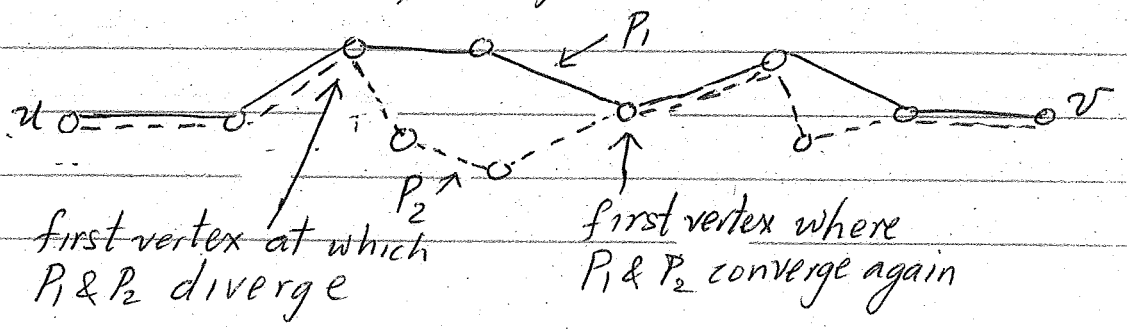 P₁
u
v
P₂
first vertex at which
P₁ & P₂ diverge
first vertex where
P₁ & P₂ converge again